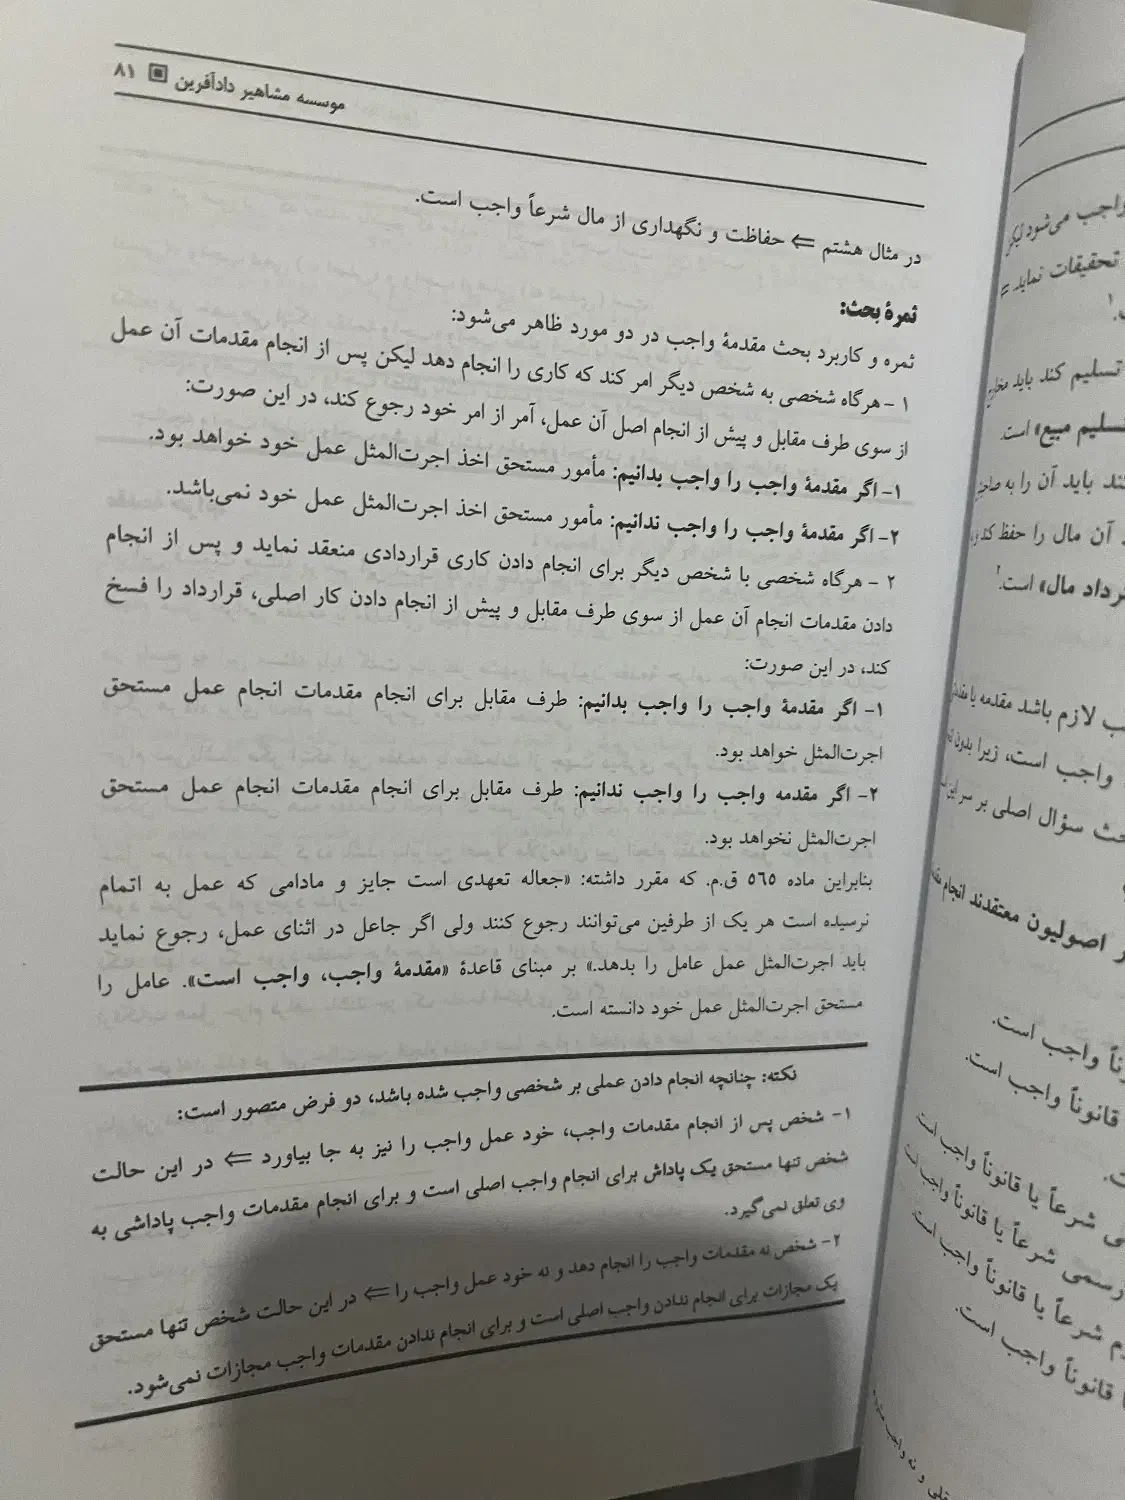 موسسه مشاهیر دادآفرین ▣ ۸۱
در مثال هشتم ⇐ حفاظت و نگهداری از مال شرعاً واجب است.
ثمرهٔ بحث:
ثمره و کاربرد بحث مقدمهٔ واجب در دو مورد ظاهر می‌شود:
۱ - هرگاه شخصی به شخص دیگر امر کند که کاری را انجام دهد لیکن پس از انجام مقدمات آن عمل
از سوی طرف مقابل و پیش از انجام اصل آن عمل، آمر از امر خود رجوع کند، در این صورت:
۱- اگر مقدمهٔ واجب را واجب بدانیم: مأمور مستحق اخذ اجرت‌المثل عمل خود خواهد بود.
۲- اگر مقدمهٔ واجب را واجب ندانیم: مأمور مستحق اخذ اجرت‌المثل عمل خود نمی‌باشد.
۲ - هرگاه شخصی با شخص دیگر برای انجام دادن کاری قراردادی منعقد نماید و پس از انجام
دادن مقدمات انجام آن عمل از سوی طرف مقابل و پیش از انجام دادن کار اصلی، قرارداد را فسخ
کند، در این صورت:
۱- اگر مقدمهٔ واجب را واجب بدانیم: طرف مقابل برای انجام مقدمات انجام عمل مستحق
اجرت‌المثل خواهد بود.
۲- اگر مقدمه واجب را واجب ندانیم: طرف مقابل برای انجام مقدمات انجام عمل مستحق
اجرت‌المثل نخواهد بود.
بنابراین ماده ۵٦۵ ق.م. که مقرر داشته: «جعاله تعهدی است جایز و مادامی که عمل به اتمام
نرسیده است هر یک از طرفین می‌توانند رجوع کنند ولی اگر جاعل در اثنای عمل، رجوع نماید
باید اجرت‌المثل عمل عامل را بدهد.» بر مبنای قاعدهٔ «مقدمهٔ واجب، واجب است». عامل را
مستحق اجرت‌المثل عمل خود دانسته است.
نکته: چنانچه انجام دادن عملی بر شخصی واجب شده باشد، دو فرض متصور است:
۱- شخص پس از انجام مقدمات واجب، خود عمل واجب را نیز به جا بیاورد ⇐ در این حالت
شخص تنها مستحق یک پاداش برای انجام واجب اصلی است و برای انجام مقدمات واجب پاداشی به
وی تعلق نمی‌گیرد.
۲- شخص نه مقدمات واجب را انجام دهد و نه خود عمل واجب را ⇐ در این حالت شخص تنها مستحق
یک مجازات برای انجام ندادن واجب اصلی است و برای انجام ندادن مقدمات واجب مجازات نمی‌شود.
واجب می‌شود لیکن
تحقیقات نماید ⇐
تسلیم کند باید
تسلیم مبیع» است.
باید آن را به
آن مال را حفظ کند و
مال» است.
لازم باشد مقدمه یا
واجب است، زیرا بدون
سؤال اصلی بر سر این
اصولیون معتقدند انجام
واجب است.
قانوناً واجب است.
شرعاً یا قانوناً واجب است
رسمی شرعاً یا قانوناً واجب
شرعاً یا قانوناً واجب است.
قانوناً واجب است.
و نه واجب